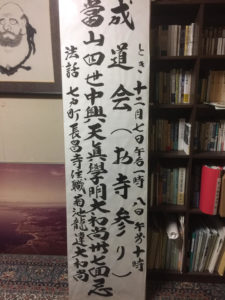 成道会(お寺参り)
とき 十二月七日午后一時 八日午前十時
當山四世中興天眞學明大和尚卅七回忌
法話 七戸町 長昌寺住職 菊池龍道大和尚